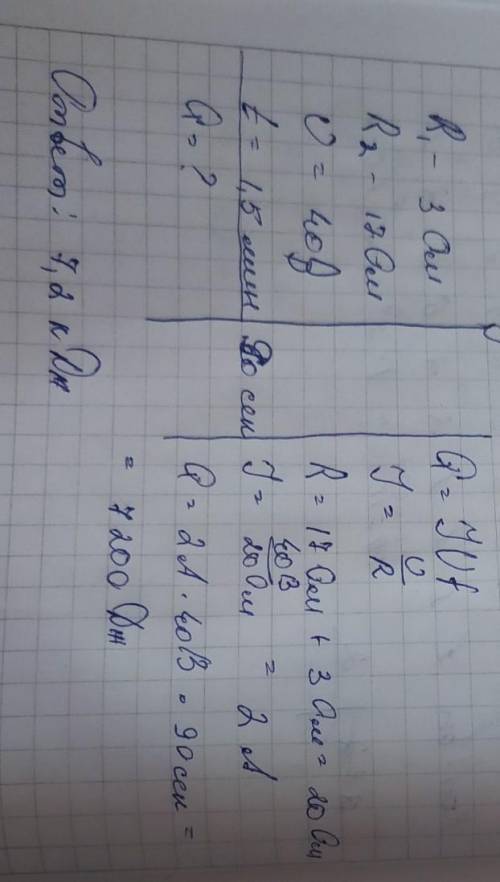 R₁ - 3 Ом
R₂ - 17 Ом
U = 40В
t = 1,5 мин
Q = ?
90 сек
Q = IUt
I = U/R
R = 17 Ом + 3 Ом = 20 Ом
I = 40В/20 Ом = 2 А
Q = 2 А · 40В · 90 сек =
= 7200 Дж
Ответ: 7,2 кДж